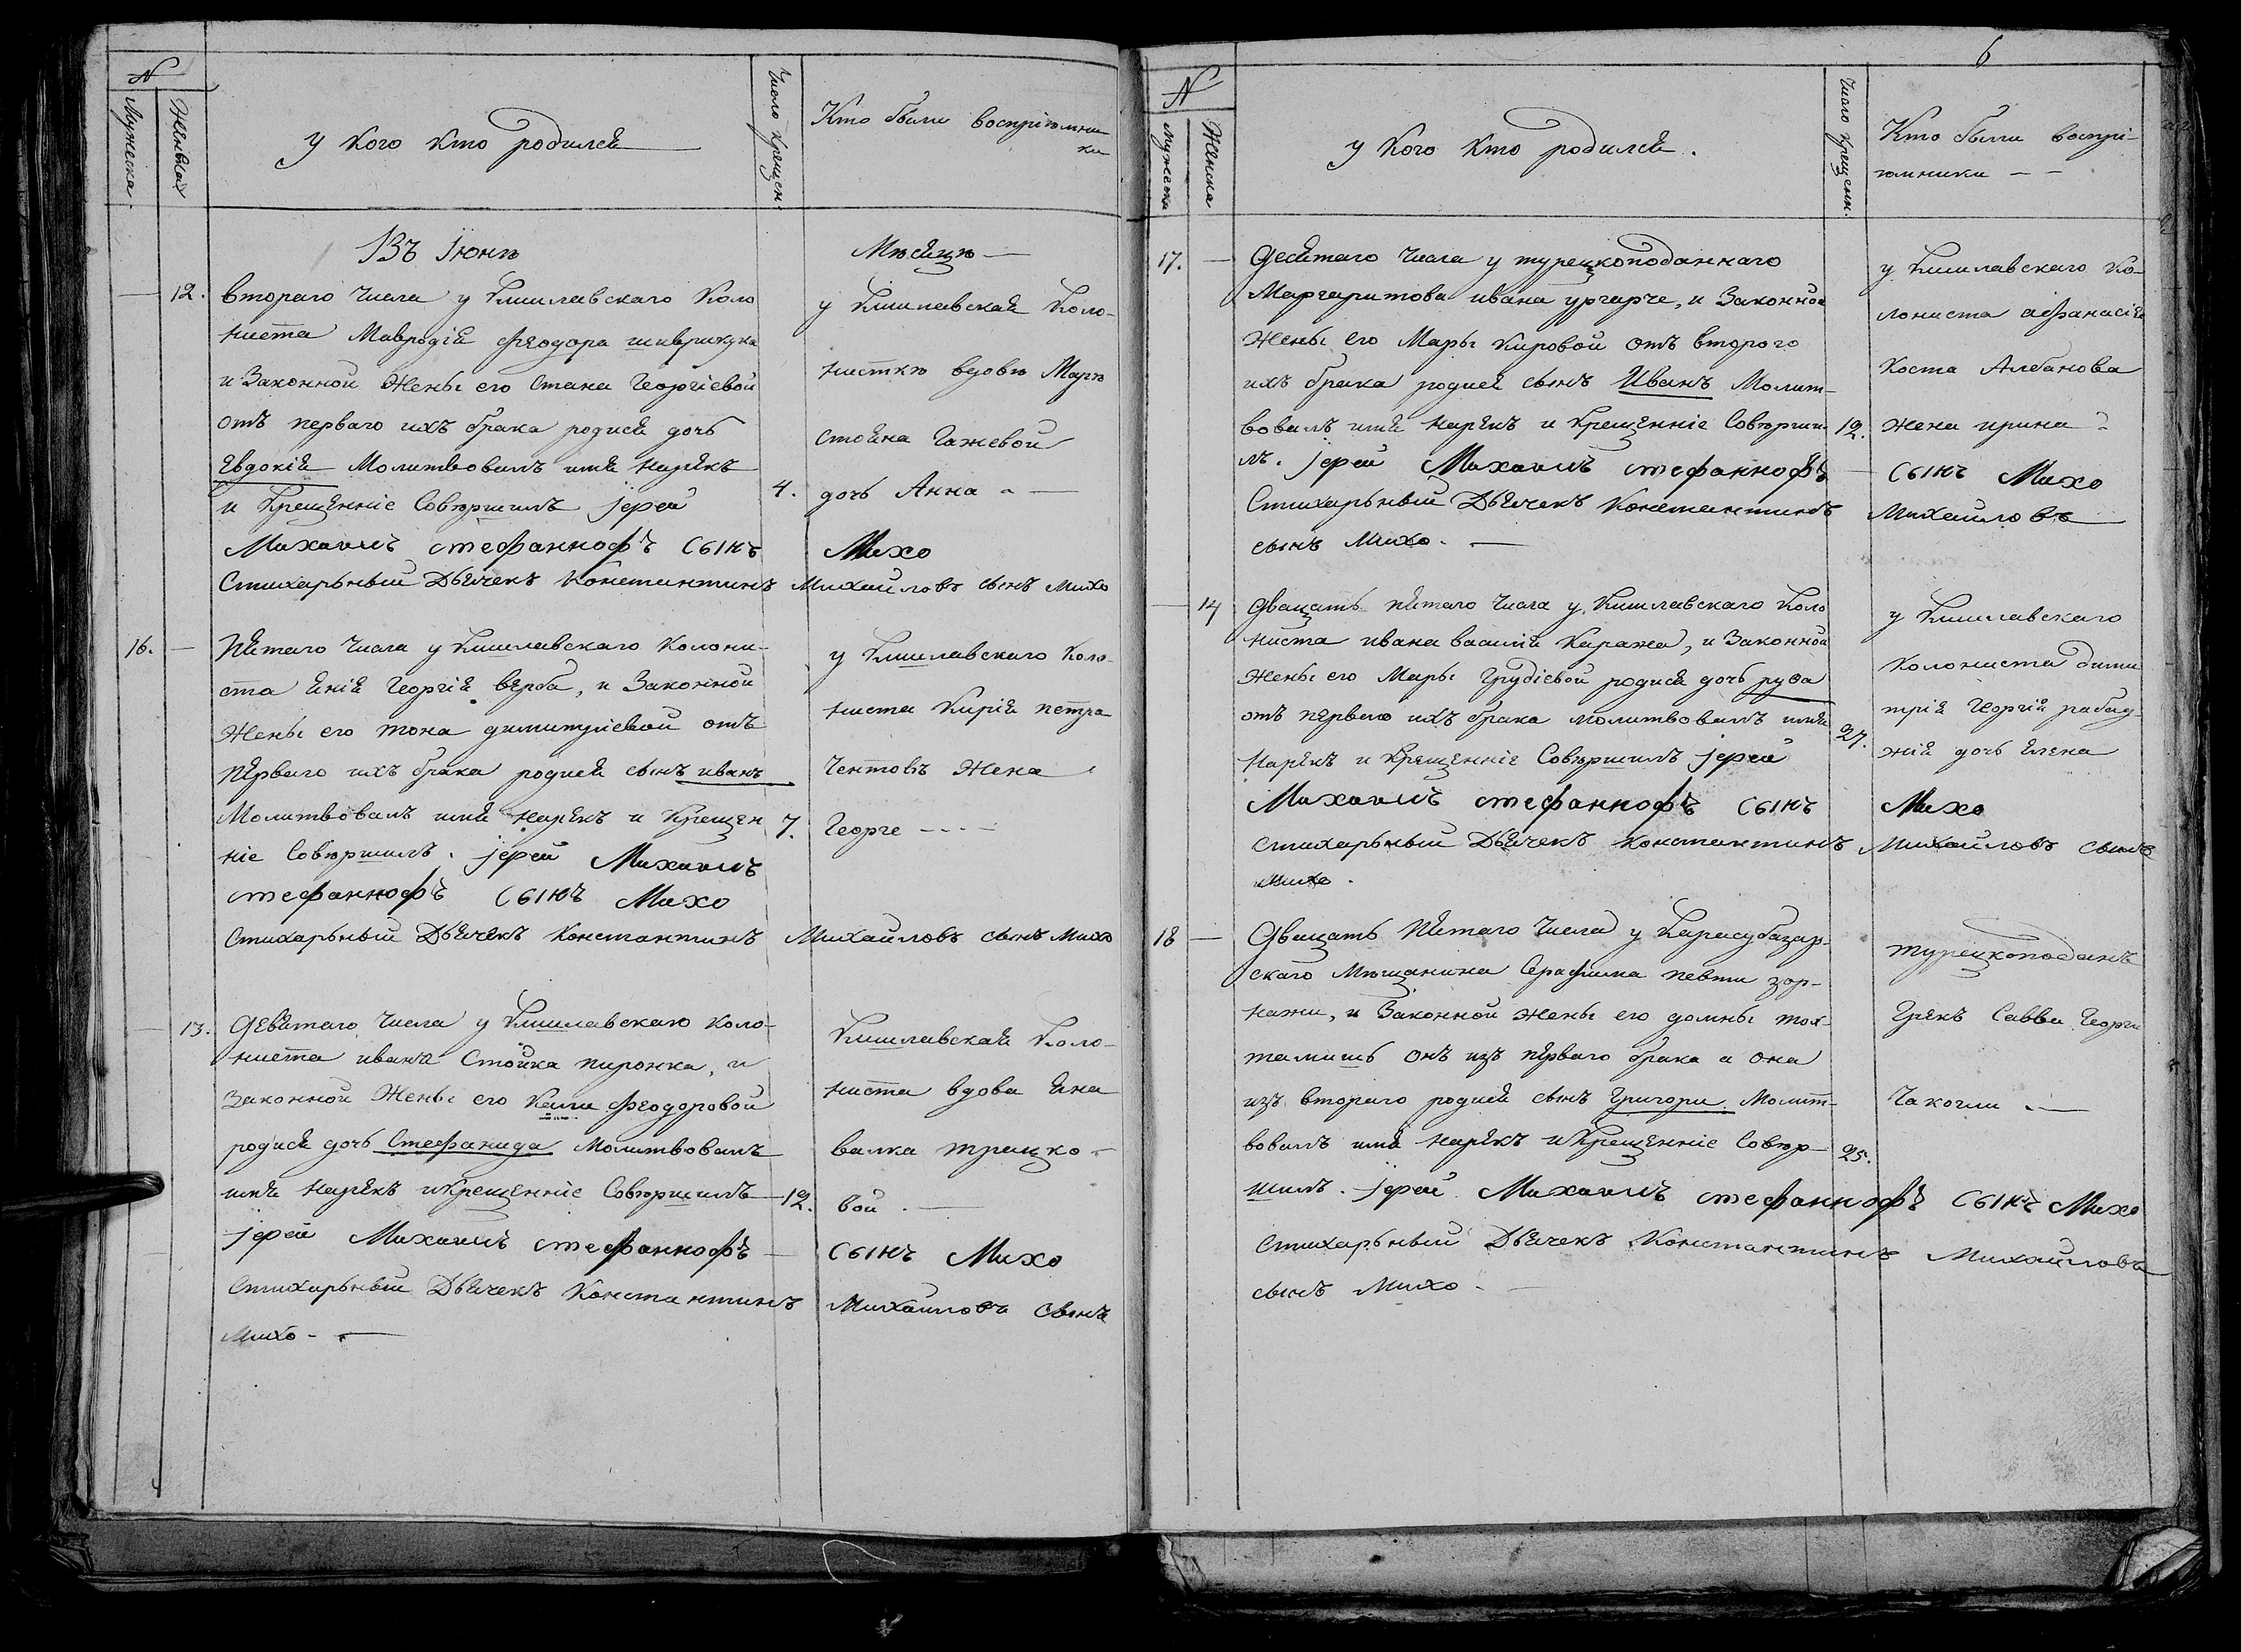 N
Мужеска.
Женьска
у кого кто родился
Число крещен.
Кто были воспріемни
ки
Въ Іюнѣ
Мѣсяцѣ
12.
втораго числа у Кишлавскаго коло
ниста Мавродій Феодора
и Законной Жены его Стана Георгіевой
отъ перваго ихъ брака родися дочь
Евдокія Молитвовалъ имя нарѣкъ
и Крещенніе Совѣршилъ јерей
Михаилъ стефанноФъ Сынъ
Стихарьный Дьячекъ Константинъ
4.
у Кишлавская Коло-
нисткѣ вдовѣ
стояна
дочь Анна
Михо
Михайловъ сынъ Михо
16.
Пятаго числа у Кишлавскаго Колони-
ста Георгія верба, и Законной
Жены его тона димитріевой отъ
пѣрваго ихъ брака родися сынъ иванъ
Молитвовалъ имя нарѣкъ и Крещен
ніе Совѣршилъ. јерей Михаилъ
стефанноФъ Сынъ Михо
Стихарьный Дьячекъ Константинъ
7.
у Кишлавскаго Коло-
ниста Кирія петра
Жена
Георге
Михайловъ сынъ Михо
13.
Девятаго числа у Кишлавскаго коло-
ниста ивана Стойка пиронка, и
Законной Жены его Феодоровой
родися дочь Стефанида Молитвовалъ
имя нарѣкъ и Крещенніе Совѣршилъ
јерей Михаилъ стефанноФъ
Стихарьный Дьячекъ Константинъ
Михо
12.
Кишлавская Коло-
ниста вдова
валка
вой
Сынъ Михо
Михайловъ сынъ
6
N
Мужеска
Женска
у кого кто родился.
Число Крещенн.
Кто были воспрі-
ѣмники
17.
Десятаго числа у турецкоподаннаго
Маргаритова ивана и Законной
Жены его Мары Кировой отъ второго
ихъ брака родися сынъ Иванъ Молит-
вовалъ имя нарѣкъ и Крещенніе Совѣрши-
лъ. јерей Михаилъ стефанноФъ
Стихарьный Дьячекъ Константинъ
сынъ Михо.
12.
у Кишлавскаго Ко-
лониста афанасія
Коста Албанова
жена ирина
Сынъ Михо
Михайловъ
14
Двацать пятаго числа у Кишлавскаго Коло
ниста ивана василія Каража, и Законной
Жены его Мары Грудіевой родися дочь руса
отъ пѣрваго ихъ брака молитвовалъ имя
нарѣкъ и Крещенніе Совѣршилъ јерей
Михаилъ стефанноФъ Сынъ
стихарьный Дьячекъ Константинъ
Михо.
27.
у Кишлавскаго
Колониста дими
трія Георгія рабад
жія дочь Елена
Михо
Михайловъ сынъ
18
Двацать Пятаго числа у Карасубазар-
скаго Мѣщанина Серафима певти зор-
нажи, и Законной жены его домны
онъ изъ пѣрваго брака а она
изъ втораго родися сынъ Григори Молит-
вовалъ имя нарѣкъ и Крещенніе Совѣр-
шилъ. јерей Михаилъ стефанноФъ Сынъ Михо
Стихарьный Дьячекъ Константинъ Михайловъ
сынъ Михо
25.
турецкоподанъ
Грѣкъ Савва Георги
Чакогли